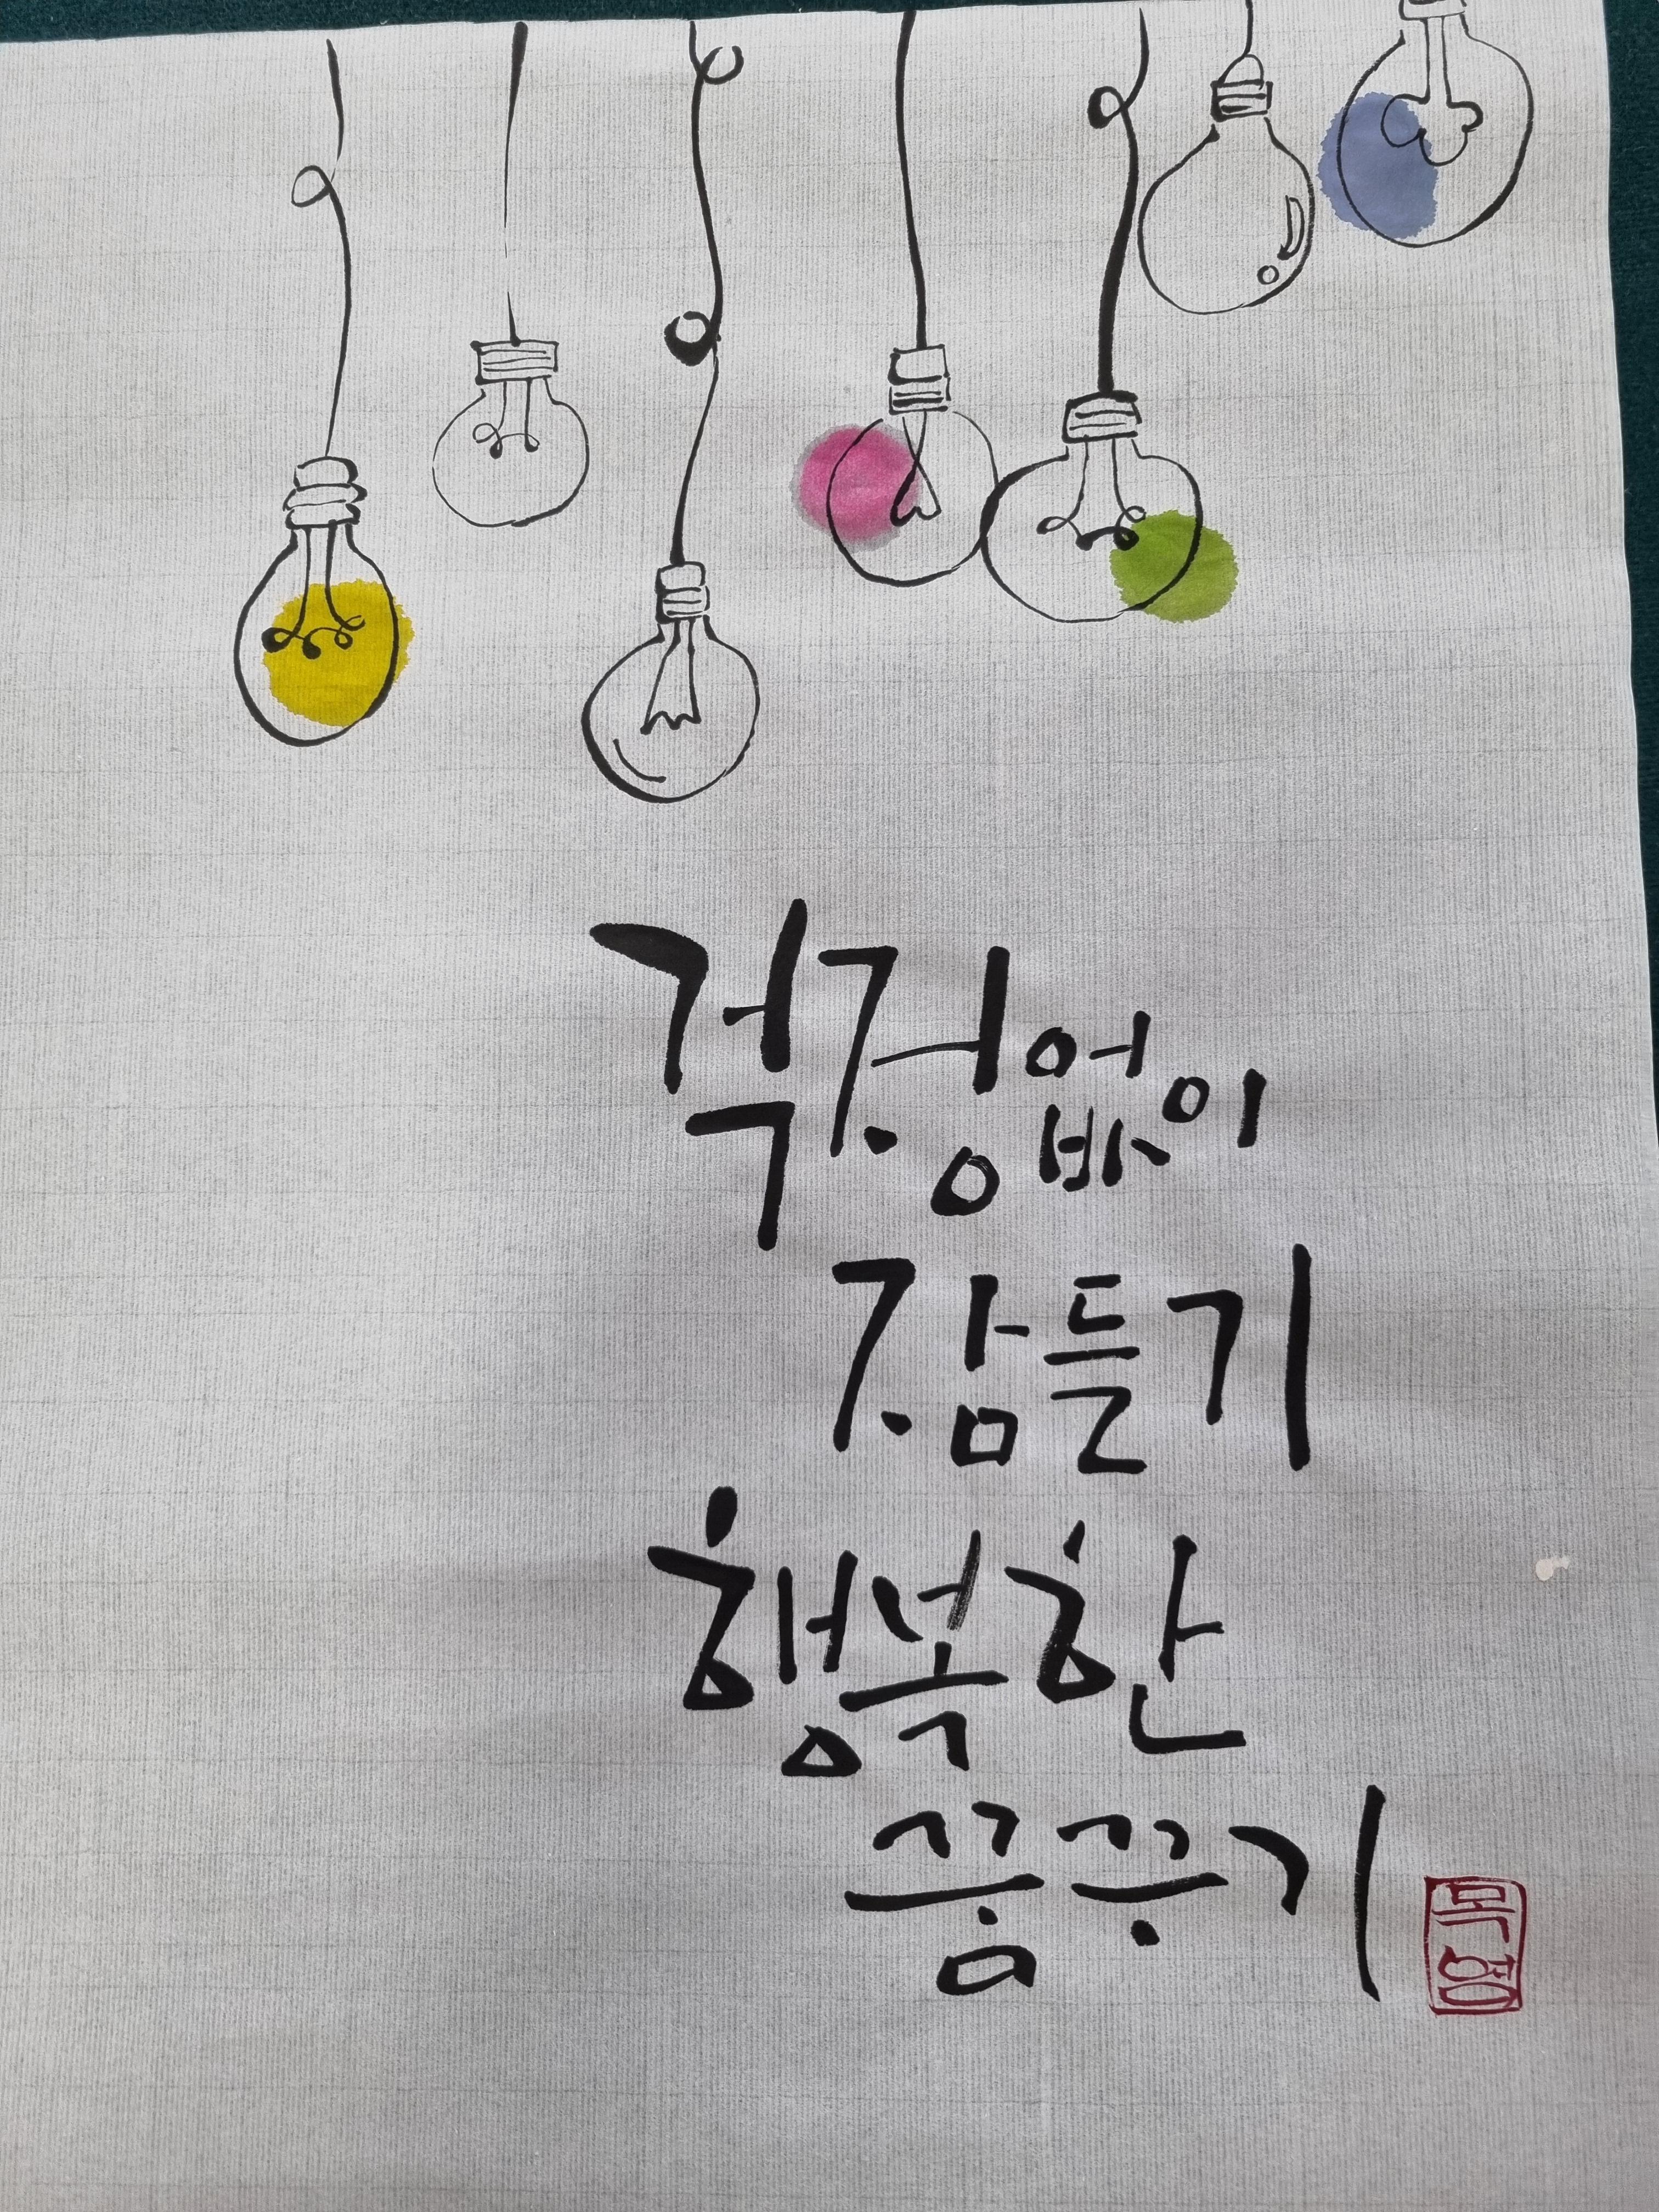 걱정없이
잠들기
행복한
꿈꾸기
목영